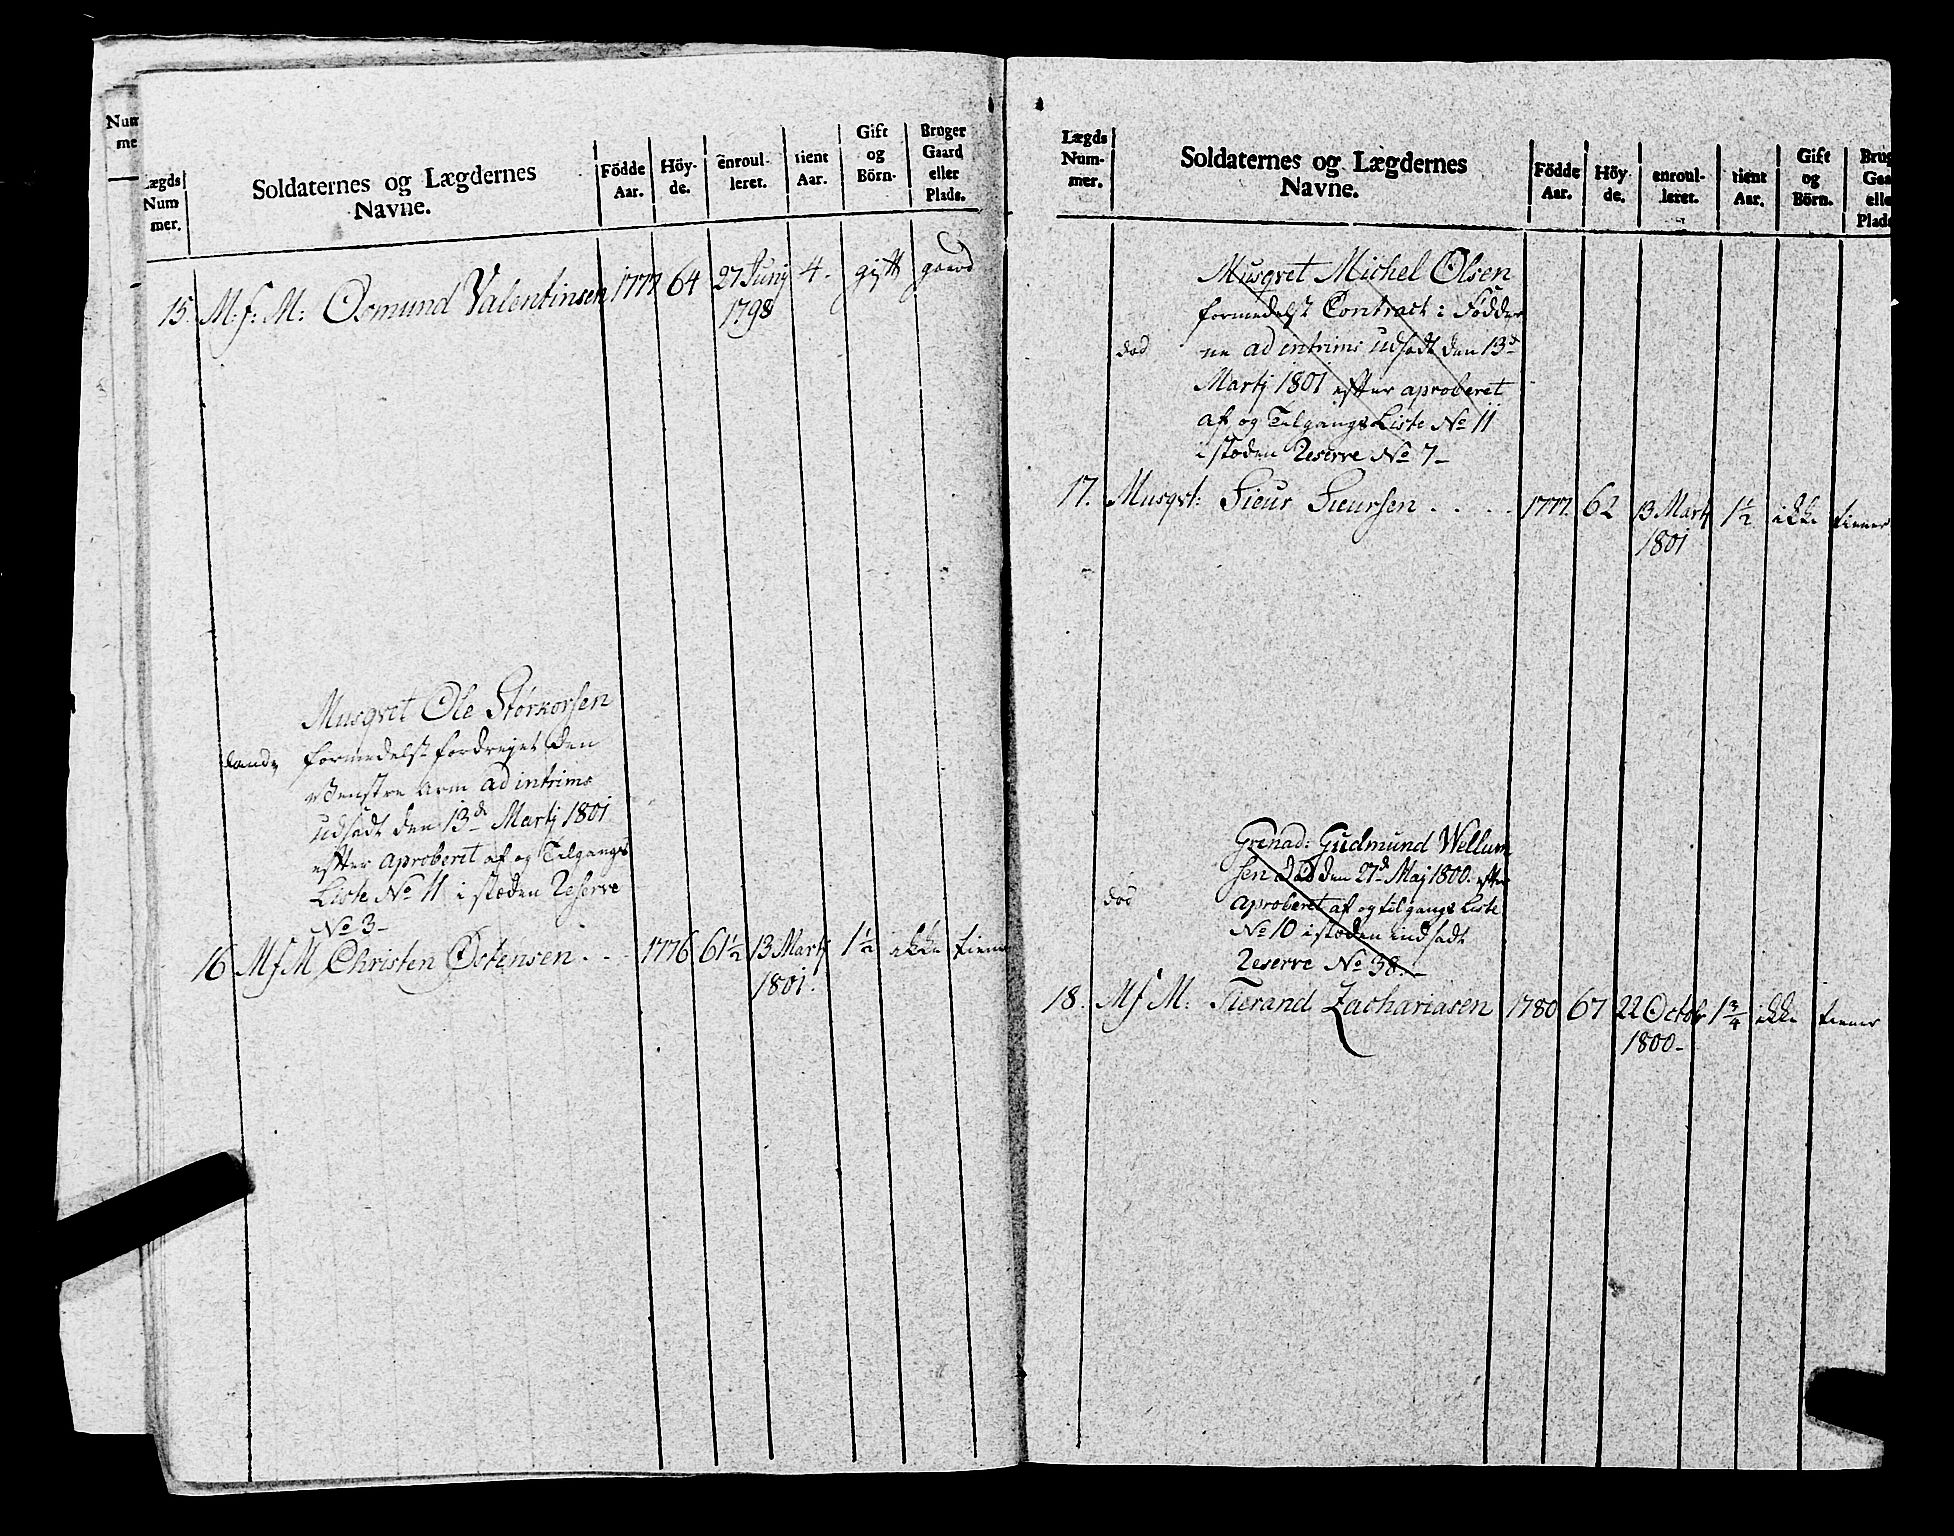 Num
me
Lægds
Num
mer.
Soldaternes og Lægdernes
Navne.
Födde
Aar.
Höy-
de.
enroul-
leret.
tient
Aar.
Gift
og
Börn.
Bruger
Gaard
eller
Plads.
15. M: f: M: Osmund Valentinsen 1777 64 27 Junij 4. gift gaard
1798
Musqvet Ole Størkorsen
formedelst fordrejet den
Venstre Arm ad intrims
udsadt den 13de Martj 1801
efter aproberet af og Tilgangs
Liste No 11 i stæden Reserve
No 3-
16 M f M Christen Ostensen . . . 1776 61½ 13 Martj 1½ ikke tiener
1801.
Lægds
Num-
mer.
Soldaternes og Lægdernes
Navne.
Födde
Aar.
Höy-
de.
enroul-
leret.
tient
Aar.
Gift
og
Börn.
Brug
Gaa
elle
Plads
Musqvet Michel Olsen
formedelst Contract: Födder
død ne ad intrims udsadt den 13de
Martj 1801 efter aproberet
af og Tilgangs Liste No 11
i stæden Reserve No 7-
17. Musqvt: Sieur Sieursen . . . . 1777 62 13 Martj 1½ ikke tiener
1801
Grenad: Gudmund Wellum
sen død den 27de Maj 1800. efter
død aproberet af og tilgangs Liste
No 10 i stæden indsadt
Reserve No 38.-
18. M f M: Tierand Zachariasen 1780 67 22 Octobr 1¾ ikke tiener
1800-